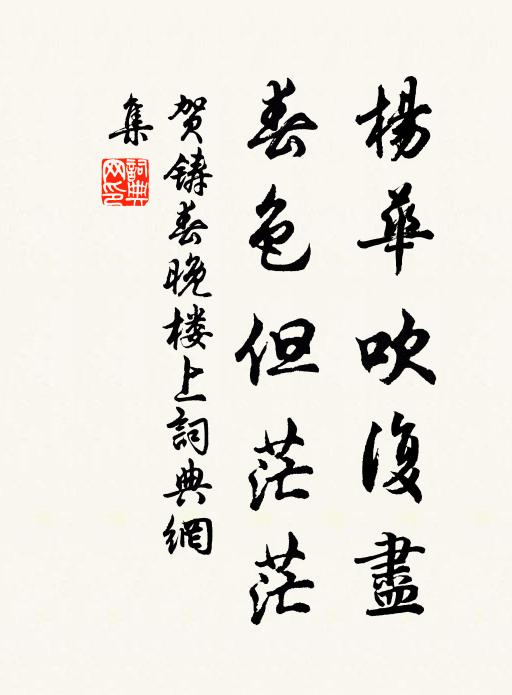 楊華吹復盡
春色但茫茫
賀鑄春晚楼上詞典網
集
詞典网印